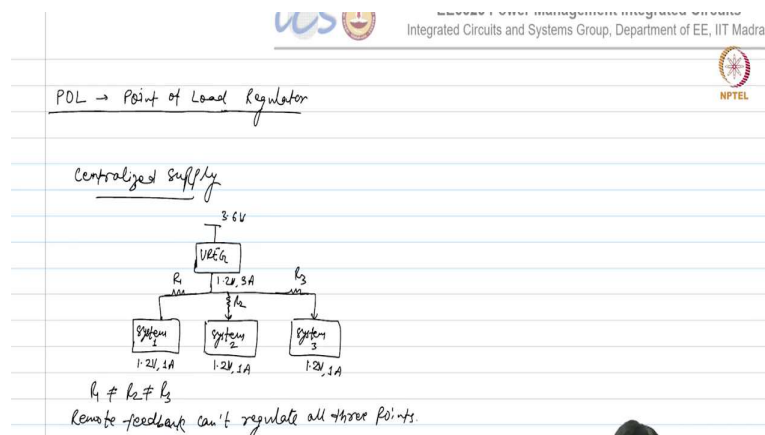 Integrated Circuits and Systems Group, Department of EE, IIT Madra
NPTEL
POL → Point of Load Regulator
Centralized Supply
3.6V
VREG
R1
1.2V, 3A
R3
R2
System 1
System 2
System 3
1.2V, 1A
1.2V, 1A
1.2V, 1A
R1 ≠ R2 ≠ R3
Remote feedback can't regulate all three points.